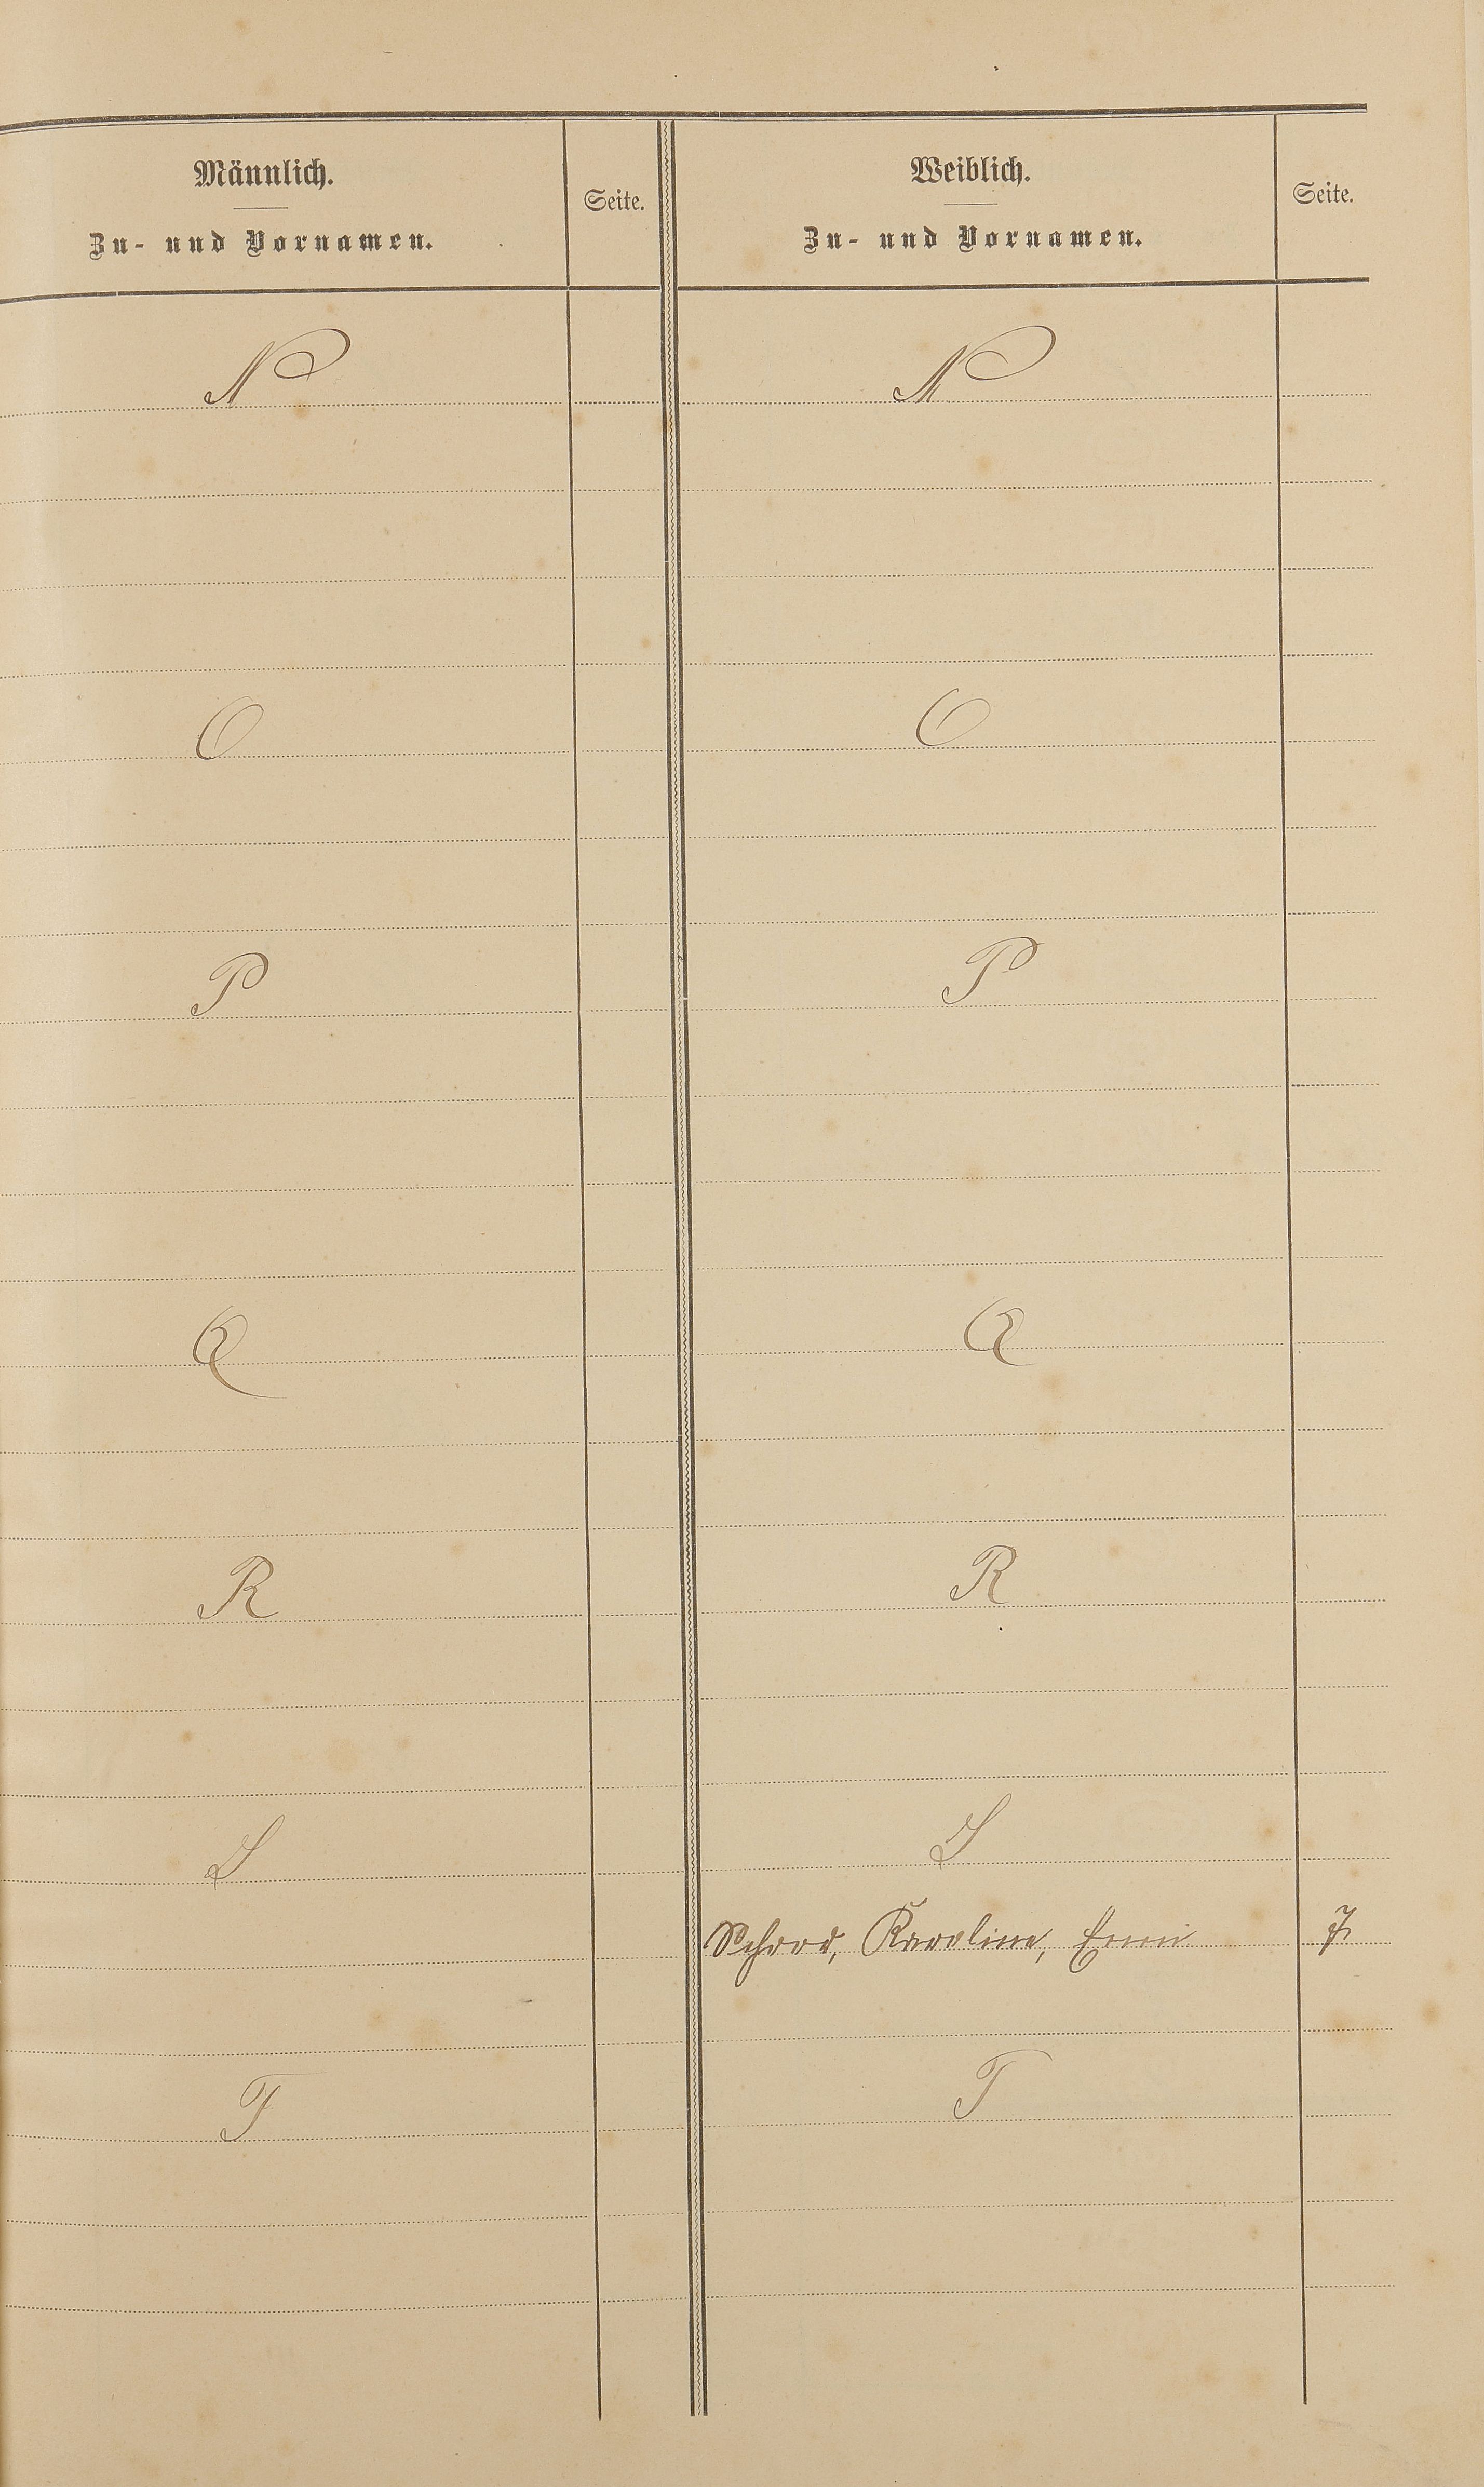 Männlich.
Zu- und Vornamen.
Seite.
Weiblich.
Zu- und Vornamen.
Seite.
N
N
O
O
P
P
Q
Q
R
R
S
S
Karoline,
7.
T
T